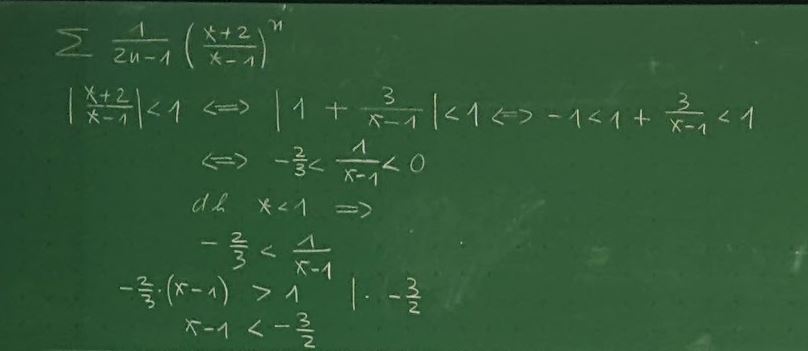 ∑ 1/(2n-1) ((x+2)/(x-1))^n
|(x+2)/(x-1)| < 1 <=> |1 + 3/(x-1)| < 1 <=> -1 < 1 + 3/(x-1) < 1
<=> -2/3 < 1/(x-1) < 0
dh x < 1 =>
-2/3 < 1/(x-1)
-2/3 · (x-1) > 1 | · -3/2
x-1 < -3/2